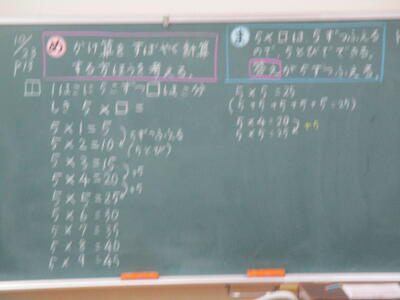 10/23
P13
め かけ算をすばやく計算
する方ほうを考える。
1はこに5こずつ□はこ分
しき 5×□=
5×1=5
5×2=10
5×3=15
5×4=20
5×5=25
5×6=30
5×7=35
5×8=40
5×9=45
5ずつふえる
(5とび)
+5
+5
ま 5×□は5ずつふえる
ので、5とびでできる。
答えが5ずつふえる。
5×5=25
(5+5+5+5+5=25)
5×4=20
5×5=25
+5